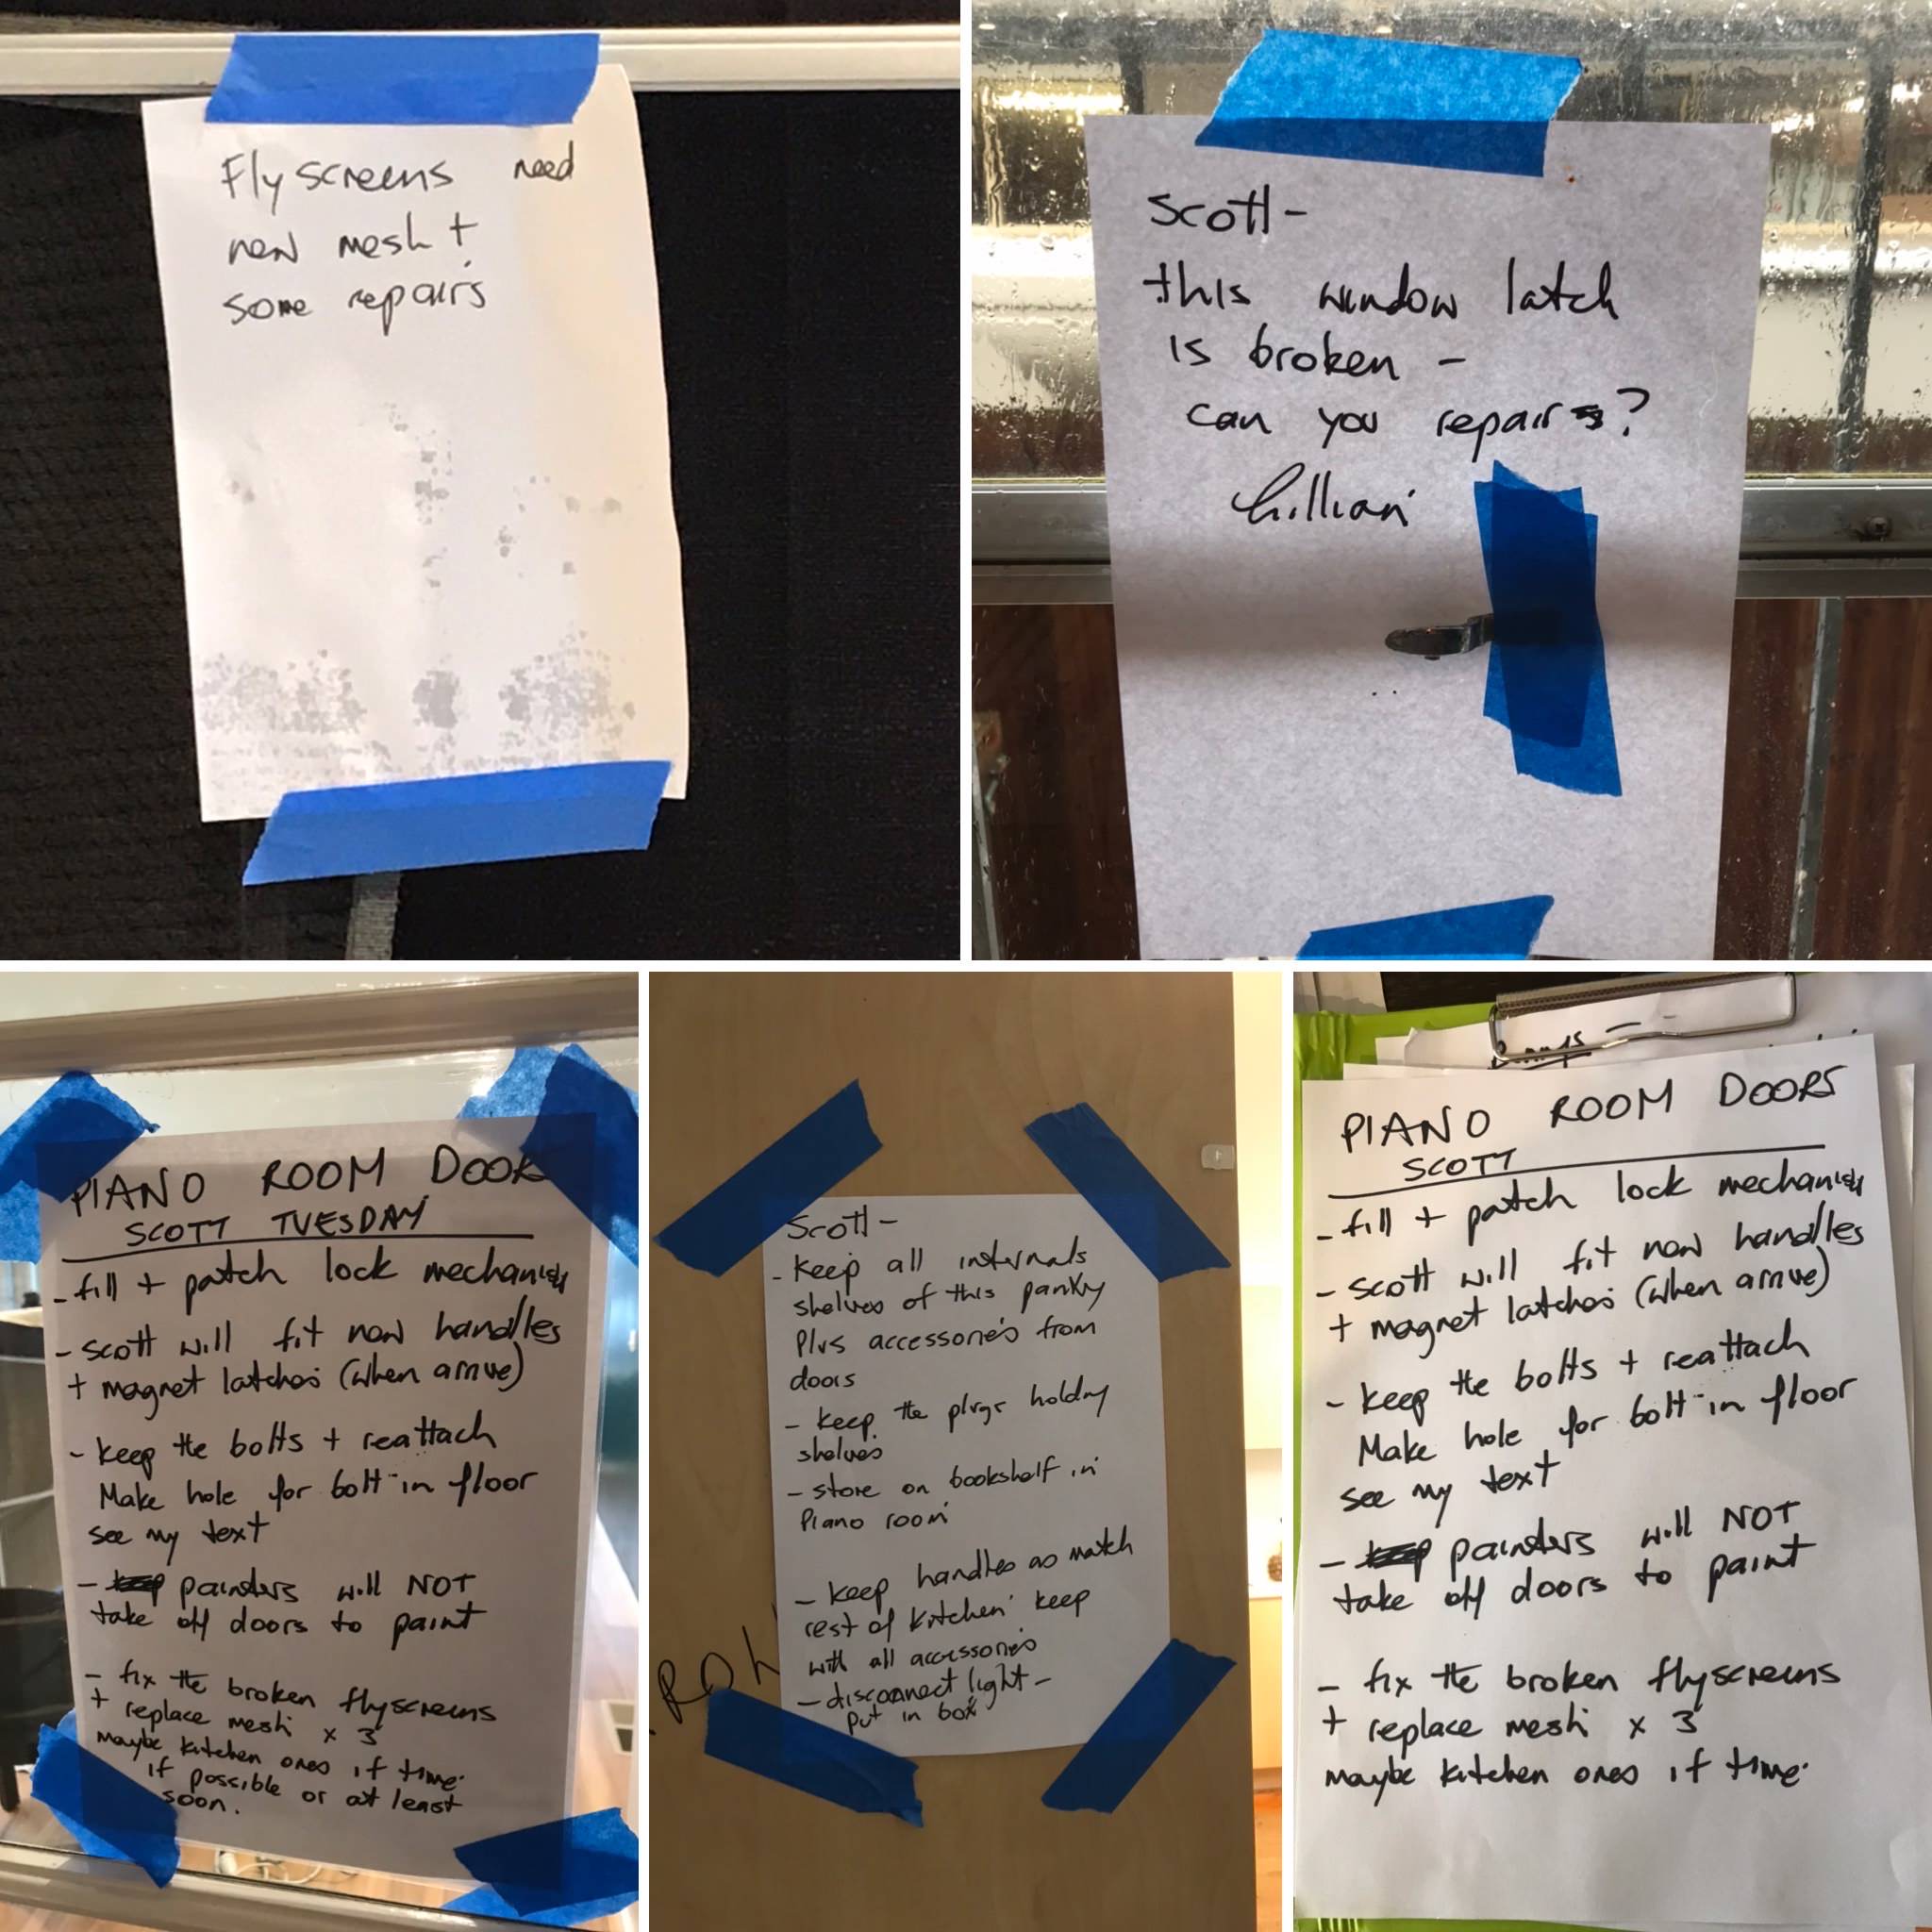 Fly screens need
new mesh +
some repairs
Scott -
this window latch
is broken -
can you repair ?
Gillian
PIANO ROOM DOOR
SCOTT TUESDAY
- fill + patch lock mechanism
- Scott will fit new handles
+ magnet latches (when arrive)
- keep the bolts + reattach
Make hole for bolt in floor
see my text
- painters will NOT
take off doors to paint
- fix the broken flyscreens
+ replace mesh x 3
maybe kitchen ones if time.
if possible or at least
soon.
Scott -
- keep all internals
shelves of this pantry
Plus accessories from
doors
- keep the plugs holding
shelves
- store on bookshelf in
Piano room
- keep handles as match
rest of kitchen keep
with all accessories
- disconnect light -
put in box
PIANO ROOM DOORS
SCOTT
- fill + patch lock mechanism
- Scott will fit new handles
+ magnet latches (when arrive)
- keep the bolts + reattach
Make hole for bolt in floor
see my text
- painters will NOT
take off doors to paint
- fix the broken flyscreens
+ replace mesh x 3
maybe kitchen ones if time.